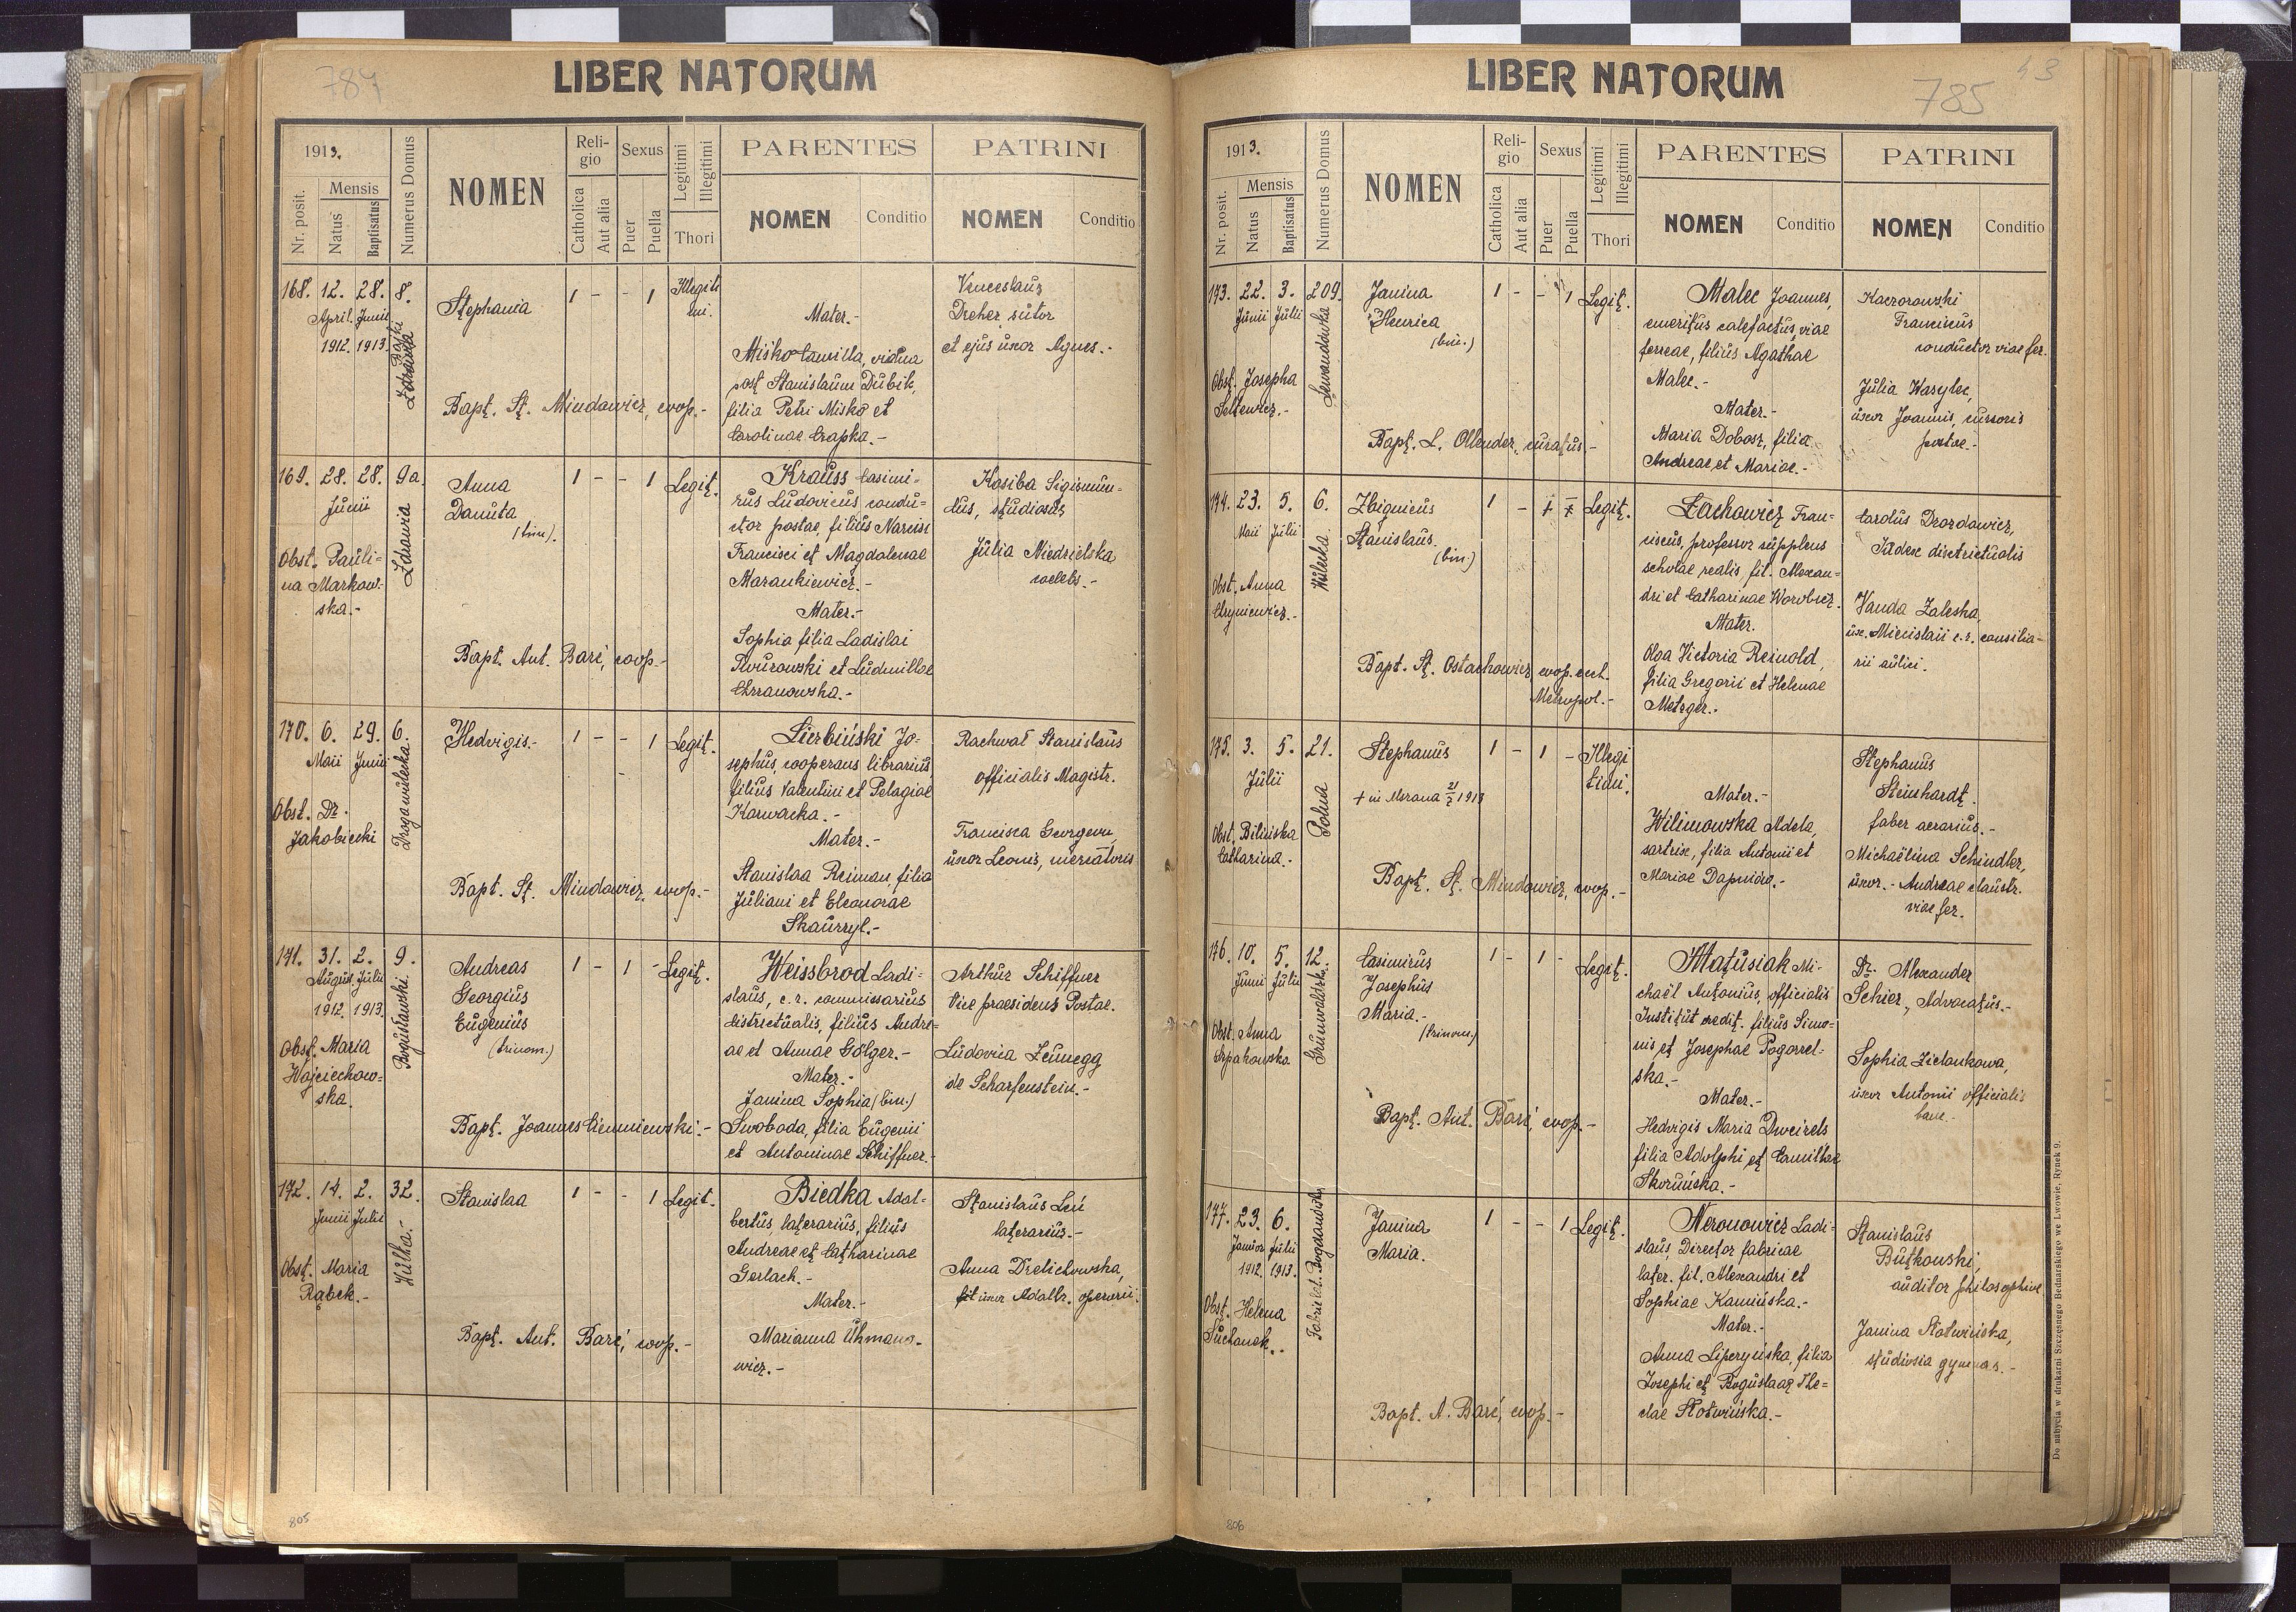 784
LIBER NATORUM
1913.
Nr. posit.
Mensis
Natus
Baptisatus
Numerus Domus
NOMEN
Religio
Catholica
Aut alia
Sexus
Puer
Puella
Legitimi
Illegitimi
Thori
PARENTES
NOMEN
Conditio
PATRINI
NOMEN
Conditio
168. 12. 28. 8.
April. Junii
1912. 1913.
Zdrowia
Stephania
1 - - 1 Illegiti
mi.
Bapt. St. Mindowicz, coop.-
Mater.-
Misko Camilla, vidua
post Stanislaum Dubik,
filia Petri Misko et
Carolinae Czapka.-
Venceslaus
Dreher sutor
et ejus uxor Agnes.-
169. 28. 28. 9a.
Junii
Zdrowia
Obst. Pauli-
na Markow-
ska.-
Anna
Danuta
(bin).
1 - - 1 Legit.
Bapt. Ant. Baré, coop.-
Krauss Casimi-
rus Ludovicus, condu-
ctor postae, filius Narcisi
Francisci et Magdalenae
Marankiewicz.-
Mater.-
Sophia filia Ladislai
Rvurowski et Ludmillae
Chrzanowska.-
Kosiba Sigismun-
dus, studiosus
Julia Niedzielska
coelebs.-
170. 6. 29. 6.
Maii Junii
Droga wulecka.
Obst. Dr.
Jakobiecki
Hedvigis.-
1 - - 1 Legit.
Bapt. St. Mindowicz, coop.-
Sierbiński Jo-
sephus, cooperans librarius,
filius Valentini et Pelagiae
Karwacka.-
Mater.-
Stanislaa Reiman, filia
Juliani et Eleonorae
Skaurzyl.-
Rachwał Stanislaus
officialis Magistr.
Francisca Georgeon,
uxor Leonis, mercatoris
171. 31. 2. 9.
August. Julii
1912. 1913.
Bogusławski.
Obst. Maria
Wojciechow-
ska.
Andreas
Georgius
Eugenius
(trinom.)
1 - 1 - Legit.
Bapt. Joannes Ciemniewski.-
Weissbrod Ladi-
slaus, c. r. commissarius
districtualis, filius Andre-
ae et Annae Gölger.-
Mater.-
Janina Sophia (bin.)
Swoboda, filia Eugenii
et Antoninae Schiffner.-
Arthur Schiffner
Vice praesidens Postae.
Ludovica Zeunegg
de Scharfenstein.-
172. 14. 2. 32.
Junii Julii
Hulka.-
Obst. Maria
Rąbek.-
Stanislaa
1 - - 1 Legit.
Bapt. Ant. Baré, coop.-
Biedka Adal-
bertus, laterarius, filius
Andreae et Catharinae
Gerlach.-
Mater.-
Marianna Uhmano-
wicz.-
Stanislaus Leń
laterarius.-
Anna Drelichowska,
uxor Adalb. operarii.
805
43
785
LIBER NATORUM
1913.
Nr. posit.
Mensis
Natus
Baptisatus
Numerus Domus
NOMEN
Religio
Catholica
Aut alia
Sexus
Puer
Puella
Legitimi
Illegitimi
Thori
PARENTES
NOMEN
Conditio
PATRINI
NOMEN
Conditio
173. 22. 3. 209.
Junii Julii
Lewandówka
Obst. Josepha
Selzewicz.-
Janina
Henrica
(bin.)
1 - - 1 Legit.
Bapt. L. Ollender, curatus.-
Malec Joannes,
emeritus calefactus, viae
ferreae, filius Agathae
Malec.-
Mater.-
Maria Dobosz, filia
Andreae et Mariae.-
Kaczorowski
Franciscus
conductor viae fer.
Julia Wasylec,
uxor Joannis, cursoris
postae.-
174. 23. 5. 6.
Maii Julii
Wulecka
Obst. Anna
Chryniewicz.-
Zbigneus
Stanislaus.
(bin.)
1 - Legit.
Bapt. St. Ostachowicz coop. eccl.
Metropol.-
Lachowicz Fran-
ciscus, professor supplens
scholae realis, fil. Alexan-
dri et Catharinae Worobiez.
Mater.
Olga Victoria Reinold,
filia Gregorii et Helenae
Metzger.-
Carolus Drozdowicz,
Judex districtualis
Vanda Zaleska,
ux. Mieislaii c. r. consilia-
rii aulici.
175. 3. 5. 21.
Julii
Polna
Obst. Bilińska
Catharina.-
Stephanus
+ in Morana 21/2 1913
1 - 1 - Illegi
timi.
Bapt. St. Mindowicz, coop.-
Mater.-
Wilimowska Adela,
sartrix, filia Antonii et
Mariae Dapniów.-
Stephanus
Steinhardt.
faber aerarius.-
Michaëlina Schindler,
uxor.- Andreae claustr.
viae fer.
176. 10. 5. 12.
Junii Julii
Grunwaldzka.
Obst. Anna
Szpakowska
Casimirus
Josephus
Maria.-
(trinom.)
1 - 1 - Legit.
Bapt. Ant. Baré, coop.-
Matusiak Mi-
chaël Antonius, officialis
Institut credit. filius Simo-
nis et Josephae Pogorzel-
ska.-
Mater.-
Hedvigis Maria Dweirels
filia Adolphi et Camillae
Skoruńska.-
Dr. Alexander
Schier, Advocatus.-
Sophia Zielonkowa,
uxor Antonii officialis
banc.-
177. 23. 6.
Januar. Julii
1912. 1913.
Obst. Helena
Suchanek.-
Janina
Maria.
1 - - 1 Legit.
Bapt. A. Baré, coop.-
Neronowicz Ladi-
slaus, Director fabricae
later. fil. Alexandri et
Sophiae Kamińska.-
Mater.-
Anna Lipczyńska, filia
Josephi et Boguslaae The-
clae Słotwińska.-
Stanislaus
Butkowski,
auditor philosophiae
Janina Słotwińska,
studiosa gymnas.-
Do nabycia w drukarni Szczęsnego Bednarskiego we Lwowie, Rynek 9.
806